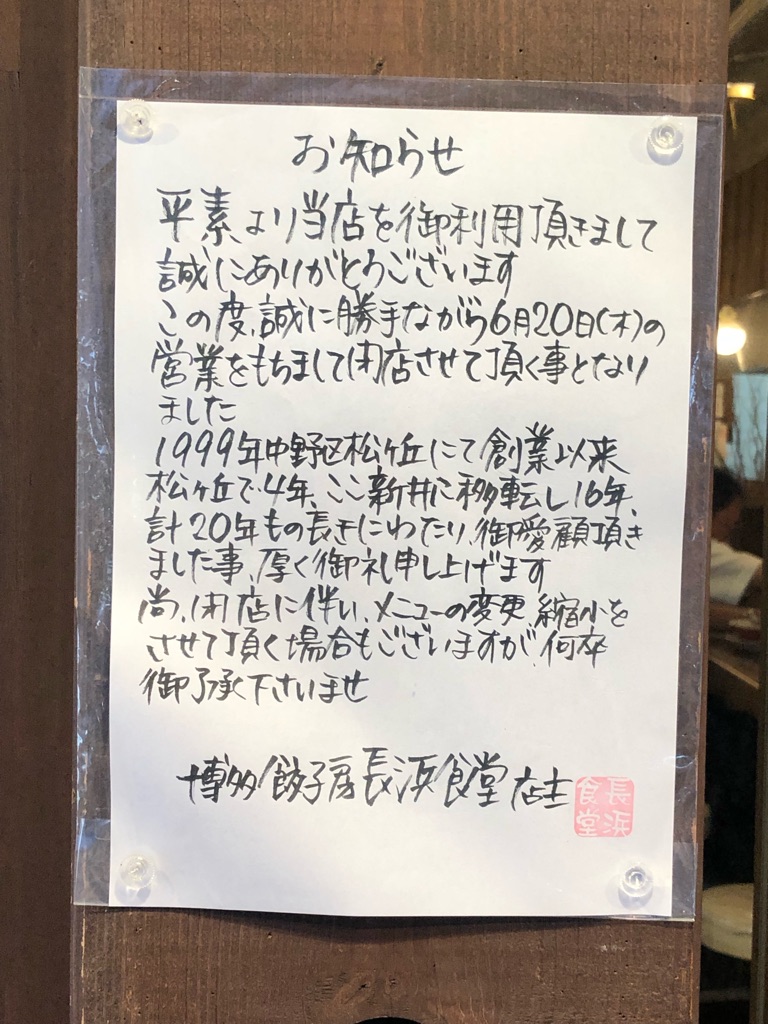 お知らせ
平素より当店を御利用頂きまして
誠にありがとうございます
この度、誠に勝手ながら6月20日(木)の
営業をもちまして閉店させて頂く事となり
ました
1999年中野区松ヶ丘にて創業以来
松ヶ丘で4年、ここ新井に移転し16年、
計20年もの長きにわたり、御愛顧頂き
ました事、厚く御礼申し上げます
尚、閉店に伴い、メニューの変更、縮小を
させて頂く場合もございますが、何卒
御了承下さいませ
博多餃子房長浜食堂 店主
長浜食堂